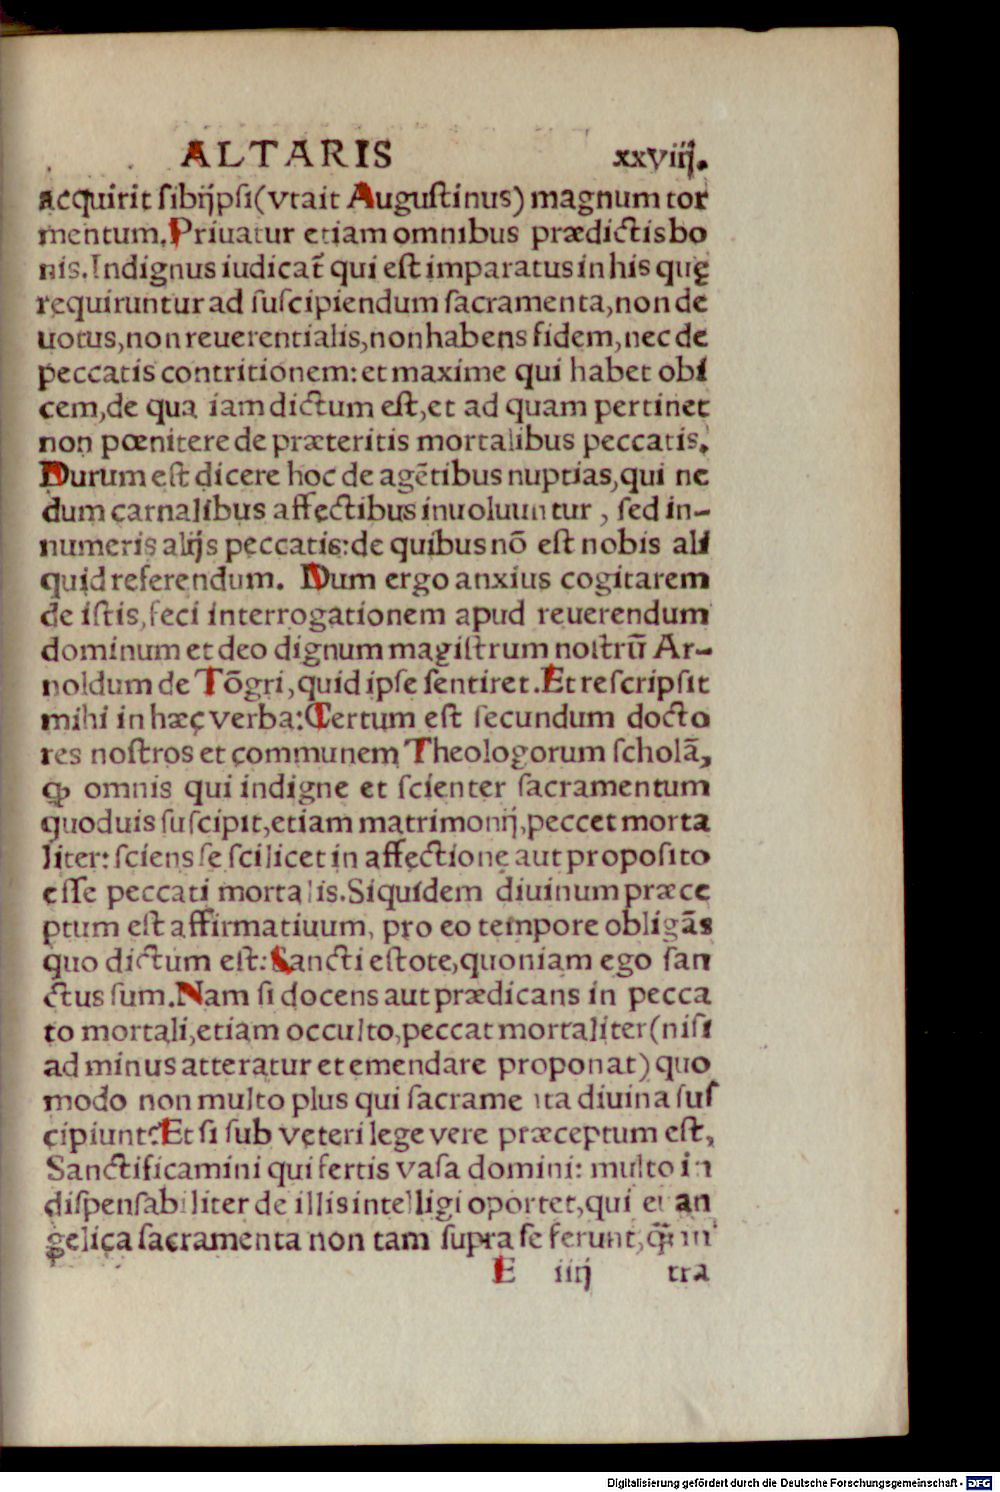 ALTARIS xxviij.
acquirit sibijpsi(vtait Augustinus) magnum tor
mentum.Priuatur etiam omnibus prædictisbo
nis.Indignus iudicat̃ qui est imparatus in his quę
requiruntur ad suscipiendum sacramenta,non de
uotus,non reuerentialis,non habens fidem,nec de
peccatis contritionem:et maxime qui habet obi
cem,de qua iam dictum est,et ad quam pertinet
non pœnitere de præteritis mortalibus peccatis.
Durum est dicere hoc de agẽtibus nuptias,qui ne
dum carnalibus affectibus inuoluuntur, sed in-
numeris alijs peccatis:de quibus nõ est nobis ali
quid referendum. Dum ergo anxius cogitarem
de istis,feci interrogationem apud reuerendum
dominum et deo dignum magistrum nostrũ Ar-
noldum de Tõgri,quid ipse sentiret.Et rescripsit
mihi in hæc verba:Certum est secundum docto
res nostros et communem Theologorum scholã,
ꝙ omnis qui indigne et scienter sacramentum
quoduis suscipit,etiam matrimonij,peccet morta
liter:sciens se scilicet in affectione aut proposito
esse peccati mortalis.Siquidem diuinum præce
ptum est affirmatiuum, pro eo tempore obligãs
quo dictum est:Sancti estote,quoniam ego san
ctus sum.Nam si docens aut prædicans in pecca
to mortali,etiam occulto,peccat mortaliter(nisi
ad minus atteratur et emendare proponat)quo
modo non multo plus qui sacramenta diuina sus
cipiunt?Et si sub veteri lege vere præceptum est,
Sanctificamini qui fertis vasa domini: multo in
dispensabiliter de illis intelligi oportet,qui et an
gelica sacramenta non tam supra se ferunt,q̃ in
E iiij tra
Digitalisierung gefördert durch die Deutsche Forschungsgemeinschaft - DFG